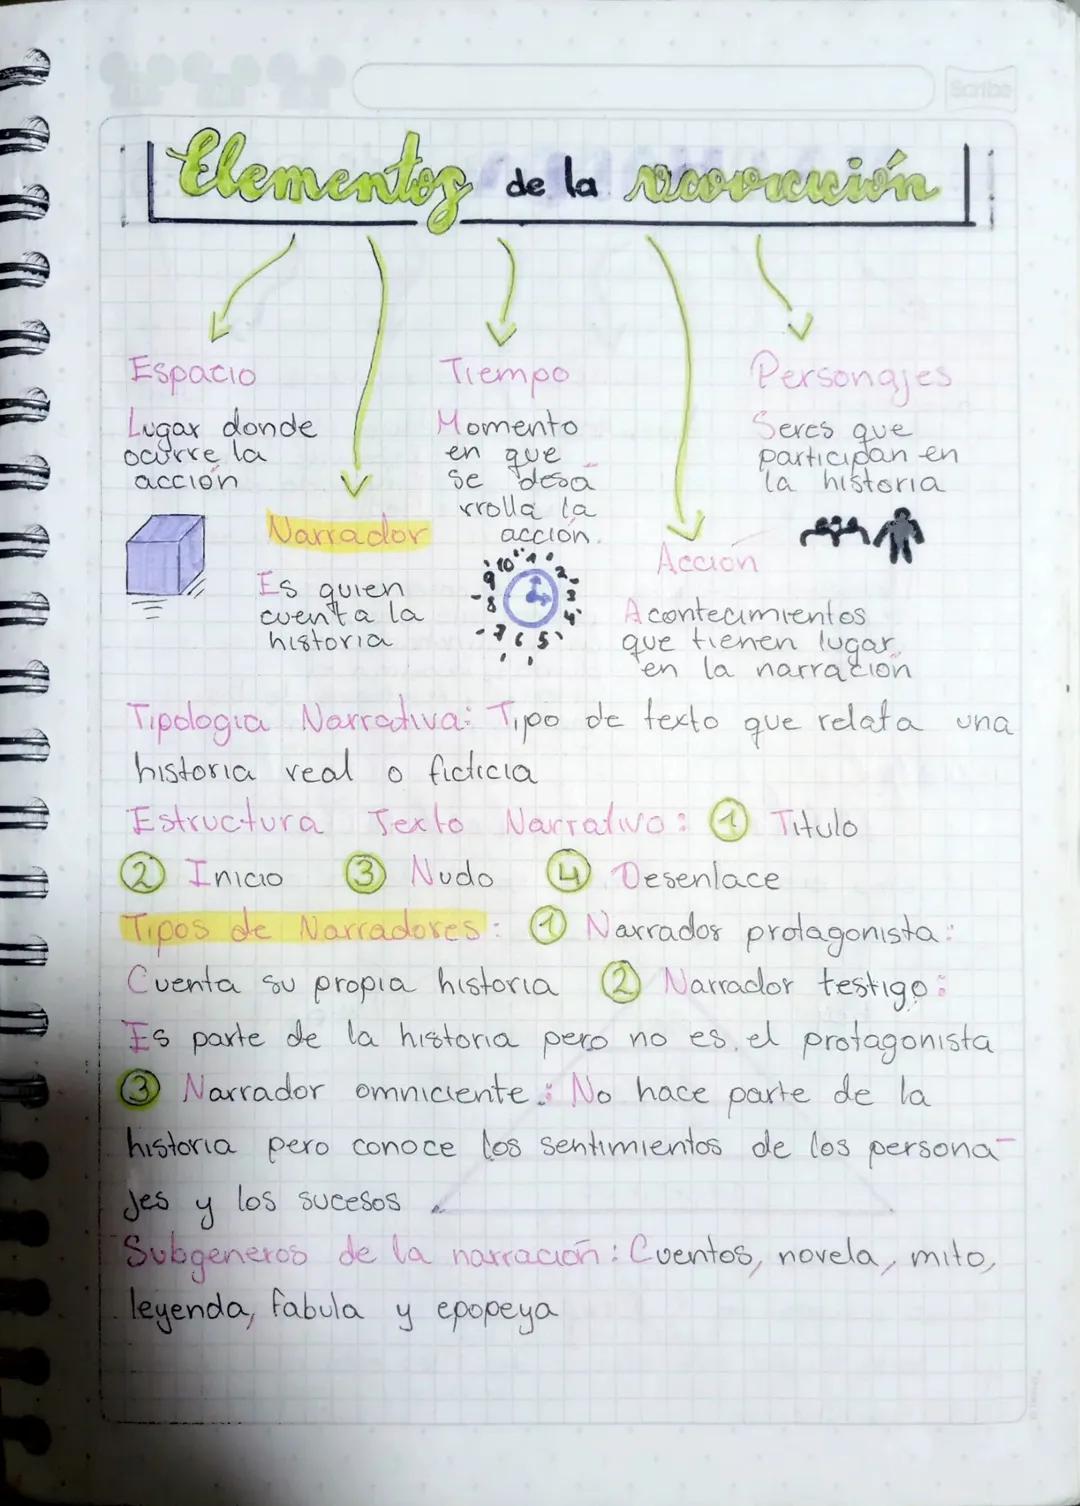 Scribe
Elementos de la narración
Espacio
Lugar donde
ocurre la
acción
Narrador
Es quien
cuenta la
historia
Tiempo
Momento
en que
se desa
rrolla la
acción.
10 11 1 2 3 4 5 6 7 8 9
Acción
Acontecimientos
que tienen lugar
en la narración
Personajes
Seres que
participan en
la historia
Tipologia Narrativa: Tipo de texto que relata una
historia real o ficticia
Estructura Texto Narrativo: 1 Titulo
2 Inicio 3 Nudo 4 Desenlace
Tipos de Narradores: 1 Narrados protagonista:
Cuenta su propia historia 2 Narrador testigo:
Es parte de la historia pero no es el protagonista
3 Narrador omniciente: No hace parte de la
historia pero conoce los sentimientos de los persona-
jes y los sucesos
Subgeneros de la narración: Cuentos, novela, mito,
leyenda, fabula y epopeya